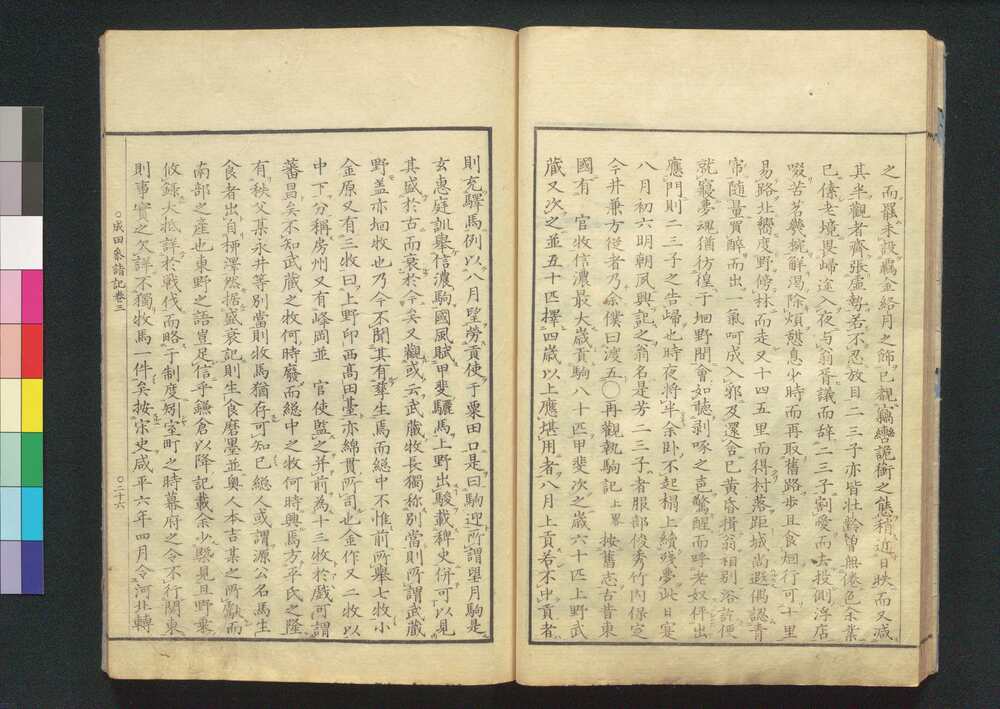 之而羅未設羈金絡月之飾已覩竊轡詭銜之態稍近日昳而又減
其半觀者齊張虛勢若不忍放目二三子亦皆壮齡曽無倦色余業
已傃老境畏歸途入夜与翁胥議而辞二三子割愛而去投側浮店
啜苦茗幾椀觧渇除煩憩息少時而再取舊路歩且食烟行可十里
易路北嚮度野傍林而走又十四五里而得村落距城尚遐偶認青
帘随量買醉而出一氣呵成入郭及還舎已黄昏揖翁相別浴訖便
就寢夢魂猶彷徨于坰野間會如聴剥啄之声驚醒而呼老奴伻出
應門則二三子之告歸也時夜将半余卧不起榻上續残夢此日寔
八月初六明朝夙興記之翁名是芳二三子者服部俊秀竹内保定
今井兼方従者乃余僕曰渡五〇再觀執駒記上畧 按舊志古昔東
國有 官牧信濃最大歳貢駒八十匹甲斐次之歳六十匹上野武
蔵又次之並五十匹擇四歳以上應堪用者八月上貢若不中貢者
則充驛馬例以八月望勞貢使于粟田口是曰駒迎所謂望月駒是
玄惠庭訓擧信濃駒國風賦甲斐驪馬上野出駿載稗史併可以見
其盛於古而衰於今矣又觀或云武蔵牧長獨称別當則所謂武蔵
野盖亦坰牧也乃今不聞其有孳生焉而総中不惟前所擧七牧小
金原又有三牧曰上野印西髙田䑓亦綿貫所司也金作又二牧以
中下分稱房州又有峰岡並 官使監之并前為十三牧於戯可謂
蕃昌矣不知武蔵之牧何時廢而総中之牧何時興焉方平氏之隆
有秩父某永井等別當則牧馬猶存可知已総人或謂源公名馬生
食者出自栁澤然据盛衰記則生食磨墨並奥人本吉某之所獻而
南部之産也東野之語豈足信乎鎌倉以降記載余少槩見且野乗
攸録大抵詳於戦伐而略于制度矧室町之時幕府之令不行関東
則事實之欠詳不獨牧馬一件矣按宋史咸平六年四月令河北轉
○成田参詣記巻三
○二十六